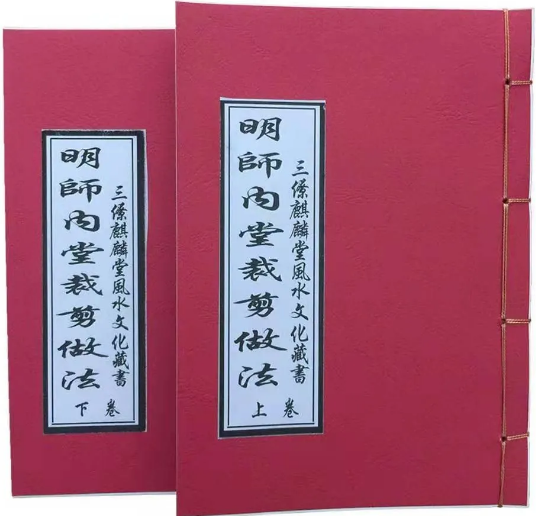 三僚麒麟堂風水文化藏書
明師內堂裁剪做法
上卷
三僚麒麟堂風水文化藏書
明師內堂裁剪做法
下卷